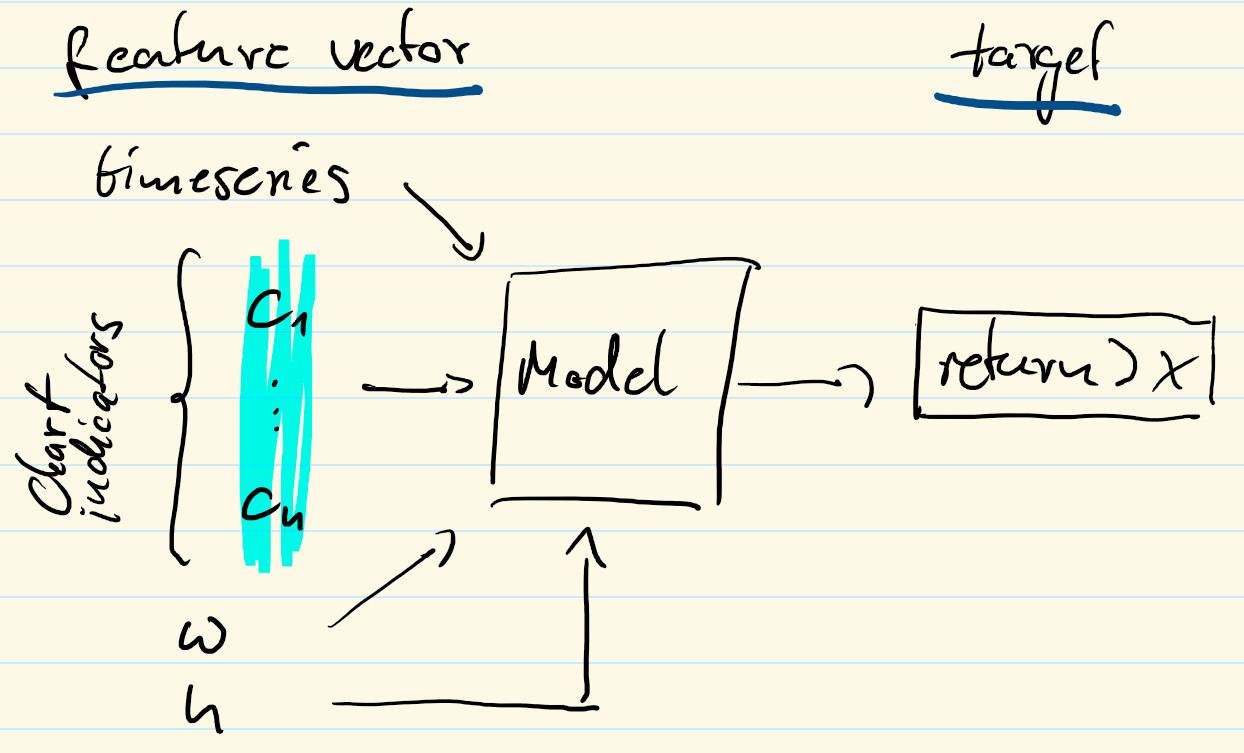 feature vector
target
timeseries
Chart
indicators
C1
⋮
Cn
Model
return > x
w
h